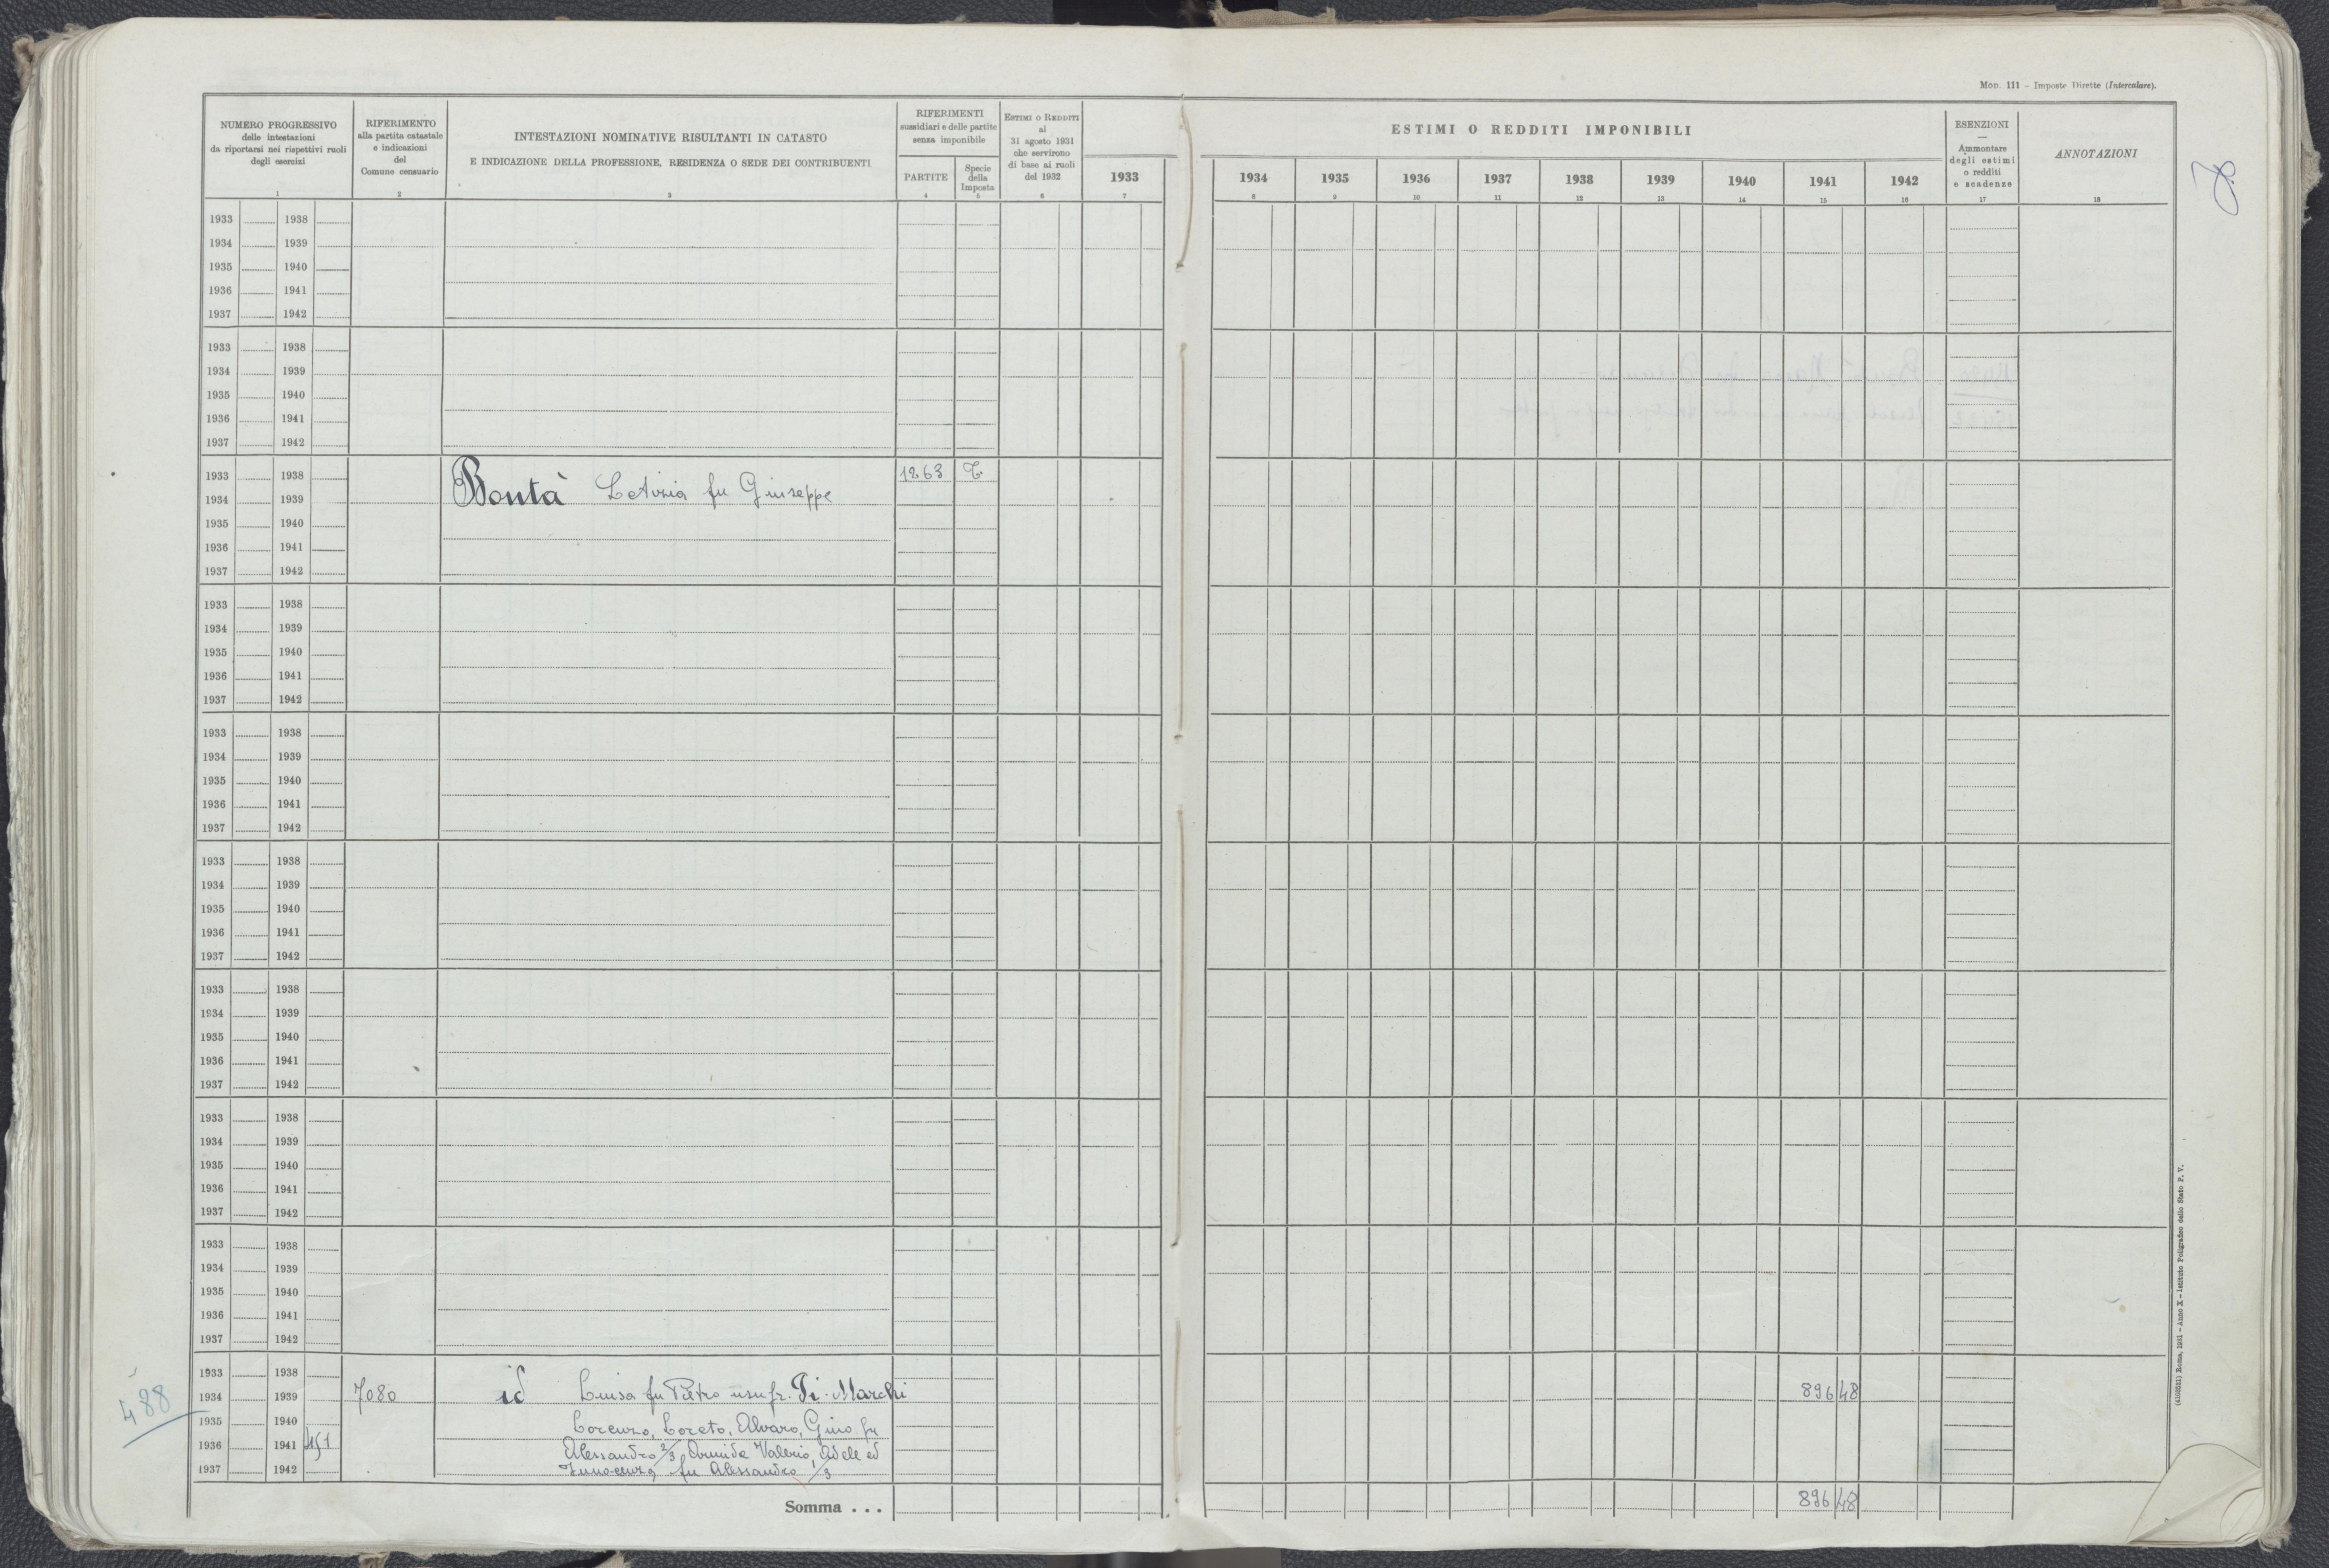 Mod. 111 – Imposte Dirette (Intercalare).
NUMERO PROGRESSIVO
delle intestazioni
da riportarsi nei rispettivi ruoli
degli esercizi
1
RIFERIMENTO
alla partita catastale
e indicazioni
del
Comune censuario
2
INTESTAZIONI NOMINATIVE RISULTANTI IN CATASTO
E INDICAZIONE DELLA PROFESSIONE, RESIDENZA O SEDE DEI CONTRIBUENTI
3
RIFERIMENTI
sussidiari e delle partite
senza imponibile
PARTITE
4
Specie
della
Imposta
5
Estimi o Redditi
al
31 agosto 1931
che servirono
di base ai ruoli
del 1932
6
ESTIMI O REDDITI IMPONIBILI
1933 1934 1935 1936 1937 1938 1939 1940 1941 1942
7 8 9 10 11 12 13 14 15 16
ESENZIONI
—
Ammontare
degli estimi
o redditi
e scadenze
17
ANNOTAZIONI
18
1933 1938
1934 1939
1935 1940
1936 1941
1937 1942
1933 1938
1934 1939
1935 1940
1936 1941
1937 1942
1933 1938 1263 T.
1934 1939 Bontà Letizia fu Giuseppe
1935 1940
1936 1941
1937 1942
1933 1938
1934 1939
1935 1940
1936 1941
1937 1942
1933 1938
1934 1939
1935 1940
1936 1941
1937 1942
1933 1938
1934 1939
1935 1940
1936 1941
1937 1942
1933 1938
1934 1939
1935 1940
1936 1941
1937 1942
1933 1938
1934 1939
1935 1940
1936 1941
1937 1942
1933 1938
1934 1939
1935 1940
1936 1941
1937 1942
1933 1938
488 1934 1939 7080 id Luisa fu Pietro usufr. Di Marchi 896 48
1935 1940 Lorenzo, Loreto, Alvaro, Gino fu
1936 1941 451 Alessandro 2/3 Armida Valerio, Adele ed
1937 1942 Innocenza fu Alessandro /3
Somma . . . 896 48
(4100331) Roma, 1931 – Anno X – Istituto Poligrafico dello Stato P. V.